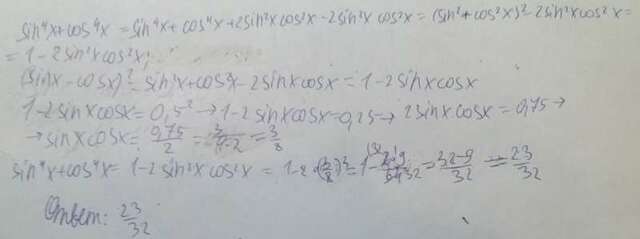 sin⁴x+cos⁴x = sin⁴x+cos⁴x+2sin²x cos²x-2sin²x cos²x=(sin²+cos²x)²-2sin²x cos²x=
=1-2sin²x cos²x;
(sinx-cosx)²=sin²x+cos²x-2sinx cosx=1-2sinx cosx
1-2sinx cosx=0,5²→1-2sinx cosx=0,25→2sinx cosx=0,75→
→sinx cosx=0,75/2=3/4·2=3/8
sin⁴x+cos⁴x=1-2sin²x cos²x=1-2·(3/8)²=1-2·9/64 32=32-9/32=23/32
Ответ: 23/32